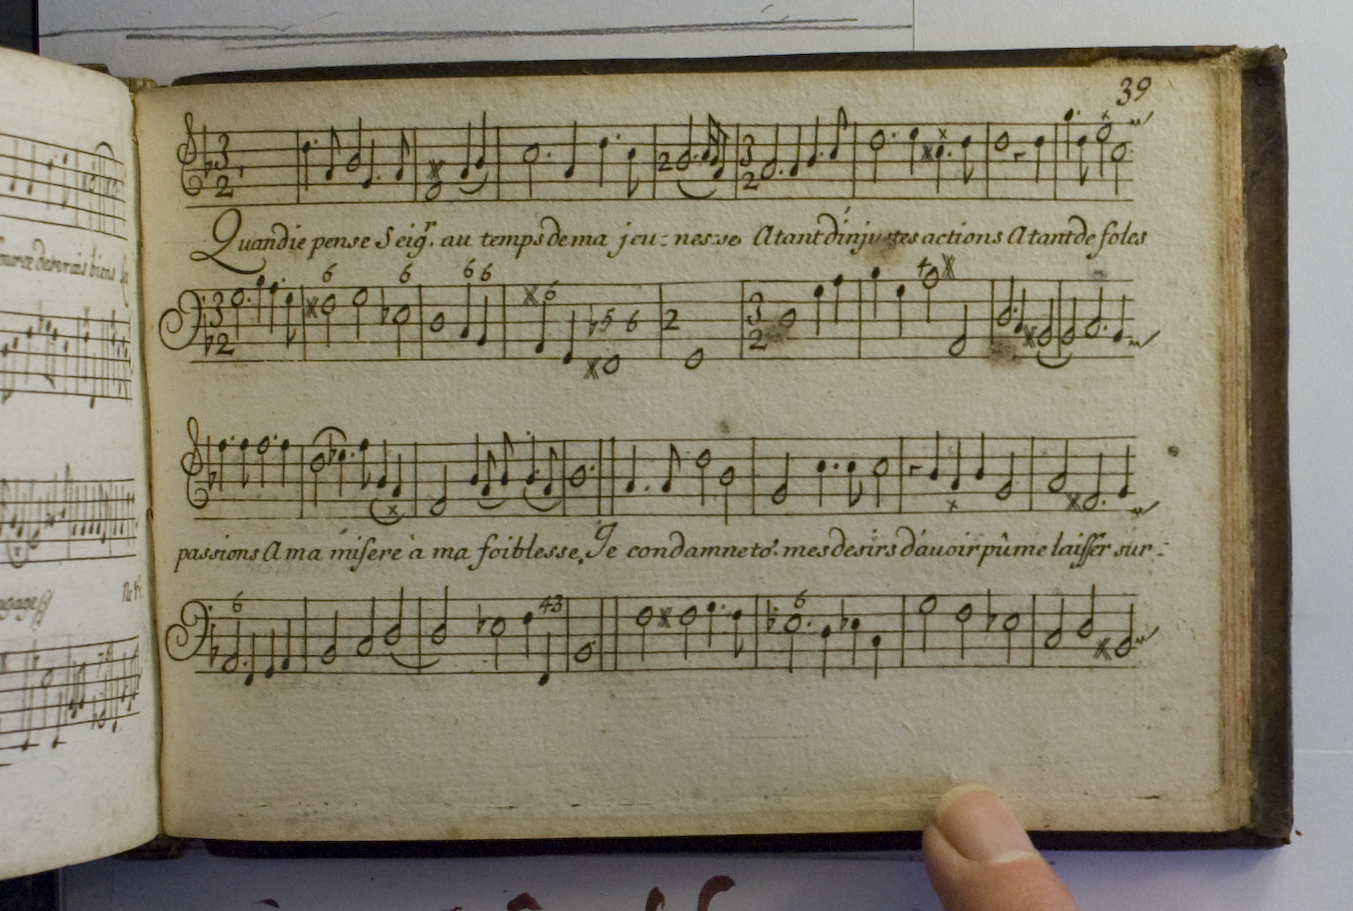 39
Quand ie pense Seigr. au temps de ma jeu-nesse A tant d'injustes actions A tant de foles
6 6 6 6 6 b5 6 4
passions A ma misere à ma foiblesse, Je condamne to.s mes desirs d'auoir pû me laisser sur-
6 43 6